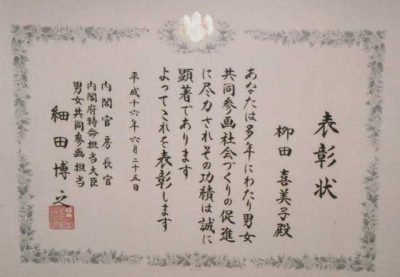 表彰状
柳田 喜美子殿
あなたは多年にわたり男女
共同参画社会づくりの促進
に尽力されその功績は誠に
顕著であります
よってこれを表彰します
平成十六年六月二十五日
内閣官房長官
内閣府特命担当大臣
男女共同参画担当
細田博之